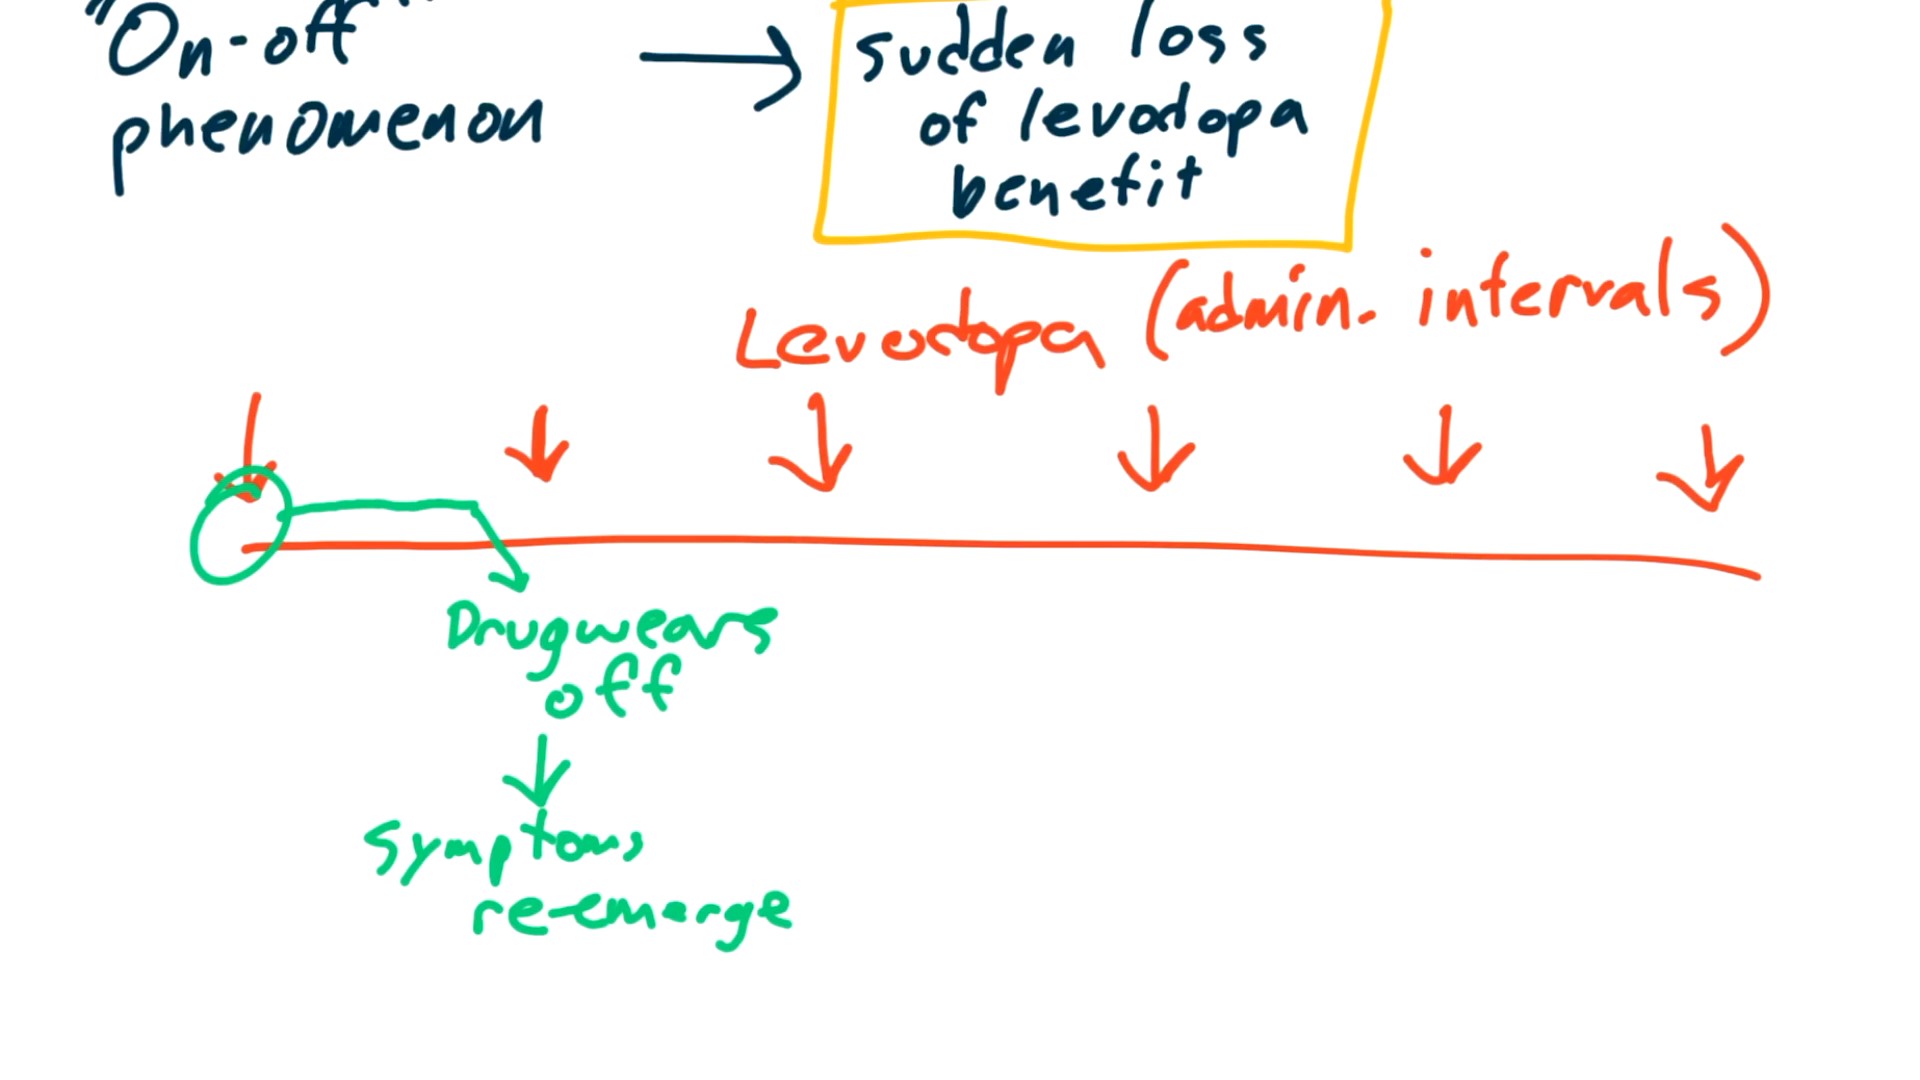 "On-off"
phenomenon
sudden loss
of levodopa
benefit
Levodopa (admin. intervals)
Drug wears
off
Symptoms
re-emerge